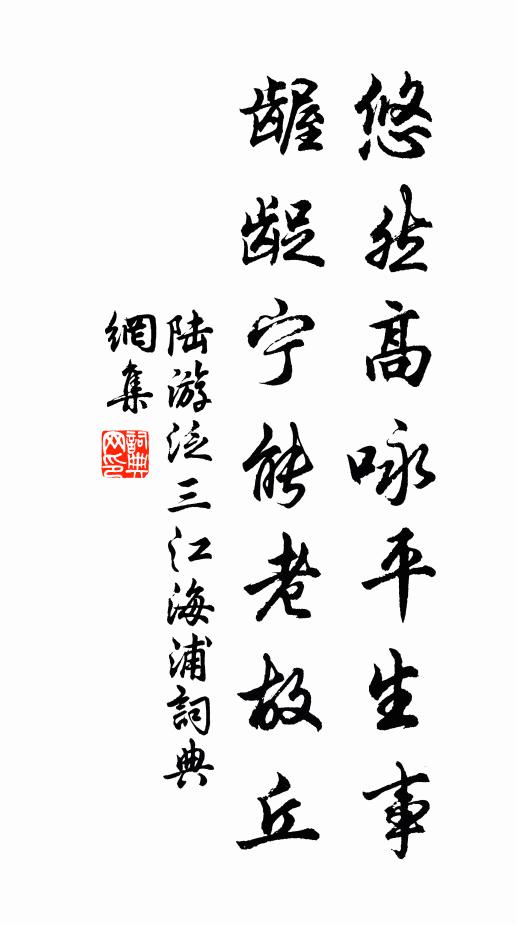 悠然高咏平生事
龌龊宁能老故丘
陆游泛三江海浦詞典
網集
詞典
网印